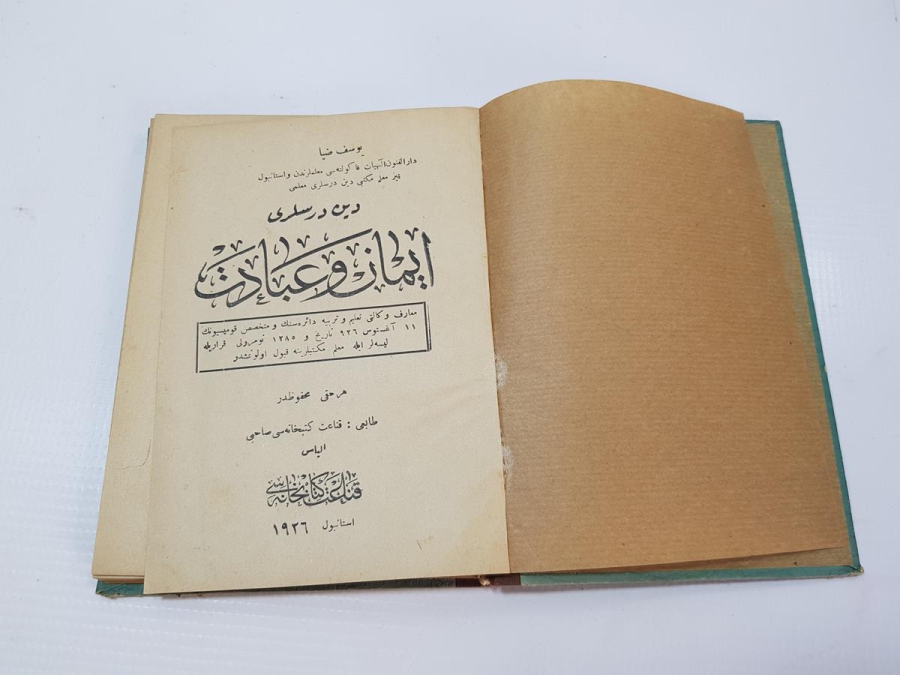 يوسف ضيا
دار الفنون الٓهيات فاكولته‌سى معلملرندن و استانبول
معلم مكتبى دين درسلرى معلمى
دين درسلرى
ايمان و عبادت
معارف وكالتى تعليم و تربيه دائره‌سنك و متخصص قوميسيونك
١١ آغستوس ٩٢٦ تاريخ و ١٢٨٥ نومرولى قراريله
ليسه‌لر ايله معلم مكتبلرينه قبول اولونمشدر
هر حقى محفوظدر
طابعى : قناعت كتبخانه‌سى صاحبى
الياس
قناعت كتابخانه‌سى
استانبول ١٩٢٦